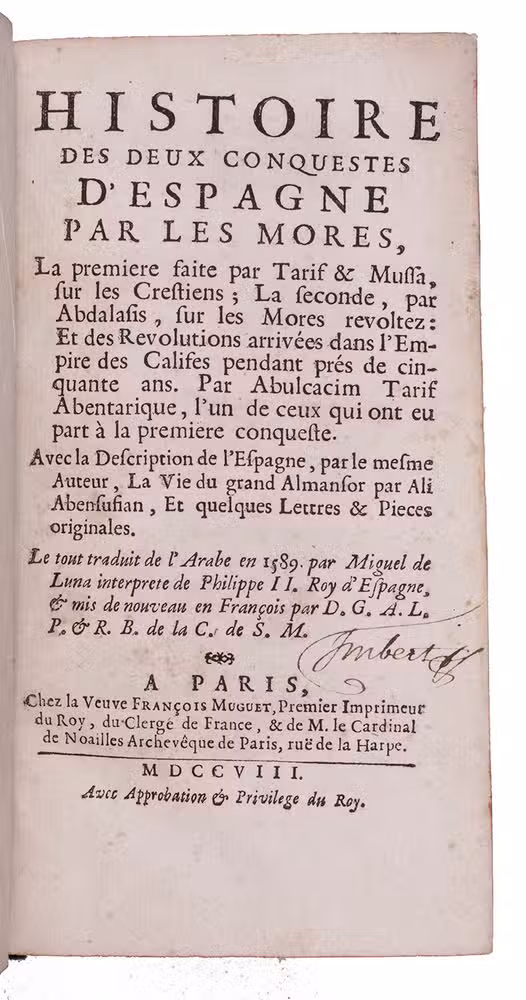 HISTOIRE
DES DEUX CONQUESTES
D'ESPAGNE
PAR LES MORES,
La premiere faite par Tarif & Muſſa,
ſur les Creſtiens ; La ſeconde, par
Abdalaſis, ſur les Mores revoltez:
Et des Revolutions arrivées dans l'Em-
pire des Califes pendant prés de cin-
quante ans. Par Abulcacim Tarif
Abentarique, l'un de ceux qui ont eu
part à la premiere conqueſte.
Avec la Deſcription de l'Eſpagne, par le meſme
Auteur, La Vie du grand Almanſor par Ali
Abenſufian, Et quelques Lettres & Pieces
originales.
Le tout traduit de l'Arabe en 1589. par Miguel de
Luna interprete de Philippe II. Roy d'Eſpagne,
& mis de nouveau en François par D. G. A. L.
P. & R. B. de la C. de S. M.
Imbert
A PARIS,
Chez la Veuve FRANÇOIS MUGUET, Premier Imprimeur
du Roy, du Clergé de France, & de M. le Cardinal
de Noailles Archevêque de Paris, ruë de la Harpe.
MDCCVIII.
Avec Approbation & Privilege du Roy.